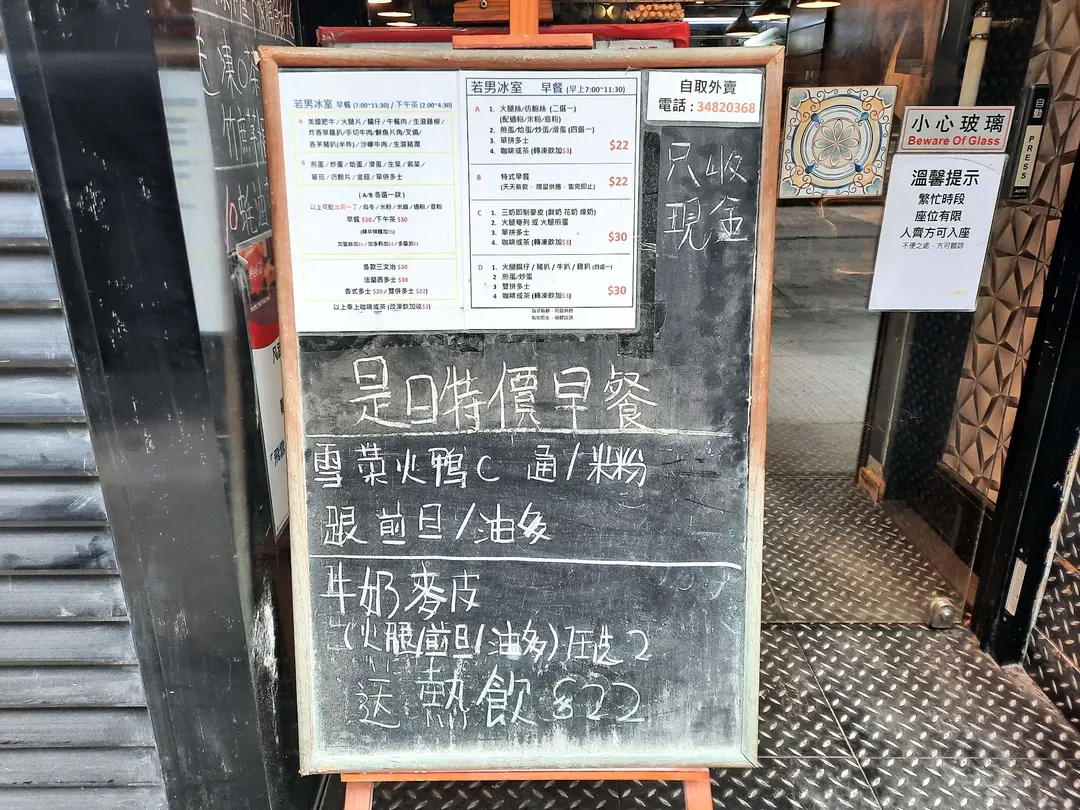 若男冰室 早餐 (7:00~11:30) / 下午茶 (2:00~4:30)
A 美國肥牛 / 火腿片 / 腸仔 / 午餐肉 / 生滾雞柳 /
炸香草雞扒 / 手切牛肉 / 鮮魚片角 / 叉燒 /
香茅豬扒(半件) / 沙嗲牛肉 / 生滾豬潤
B 煎蛋 / 炒蛋 / 烚蛋 / 滑蛋 / 生菜 / 紫菜 /
蕃茄 / 彷鮑片 / 金菇 / 單併多士
( A/B 各選一款 )
以上可配出前一丁 / 烏冬 / 米粉 / 米線 / 通粉 / 意粉
早餐 $30 / 下午茶 $30
各款三文治 $30
法蘭西多士 $30
各式多士 $20 / 雙併多士 $22)
以上奉上咖啡或茶 (改凍飲加收$3)
若男冰室 早餐 (早上7:00~11:30)
A 1. 火腿絲/彷鮑絲 (二選一)
(配通粉/米粉/意粉)
2. 煎蛋/烚蛋/炒蛋/滑蛋 (四選一)
3. 單拼多士
4. 咖啡或茶 (轉凍飲加$3) $22
B 特式早餐
(天天新款﹑限量供應﹑售完即止) $22
C 1. 三奶即制麥皮 (鮮奶 花奶 煉奶)
2. 火腿奄列 或 火腿煎蛋
3. 單拼多士
4. 咖啡或茶 (轉凍飲加$3) $30
D 1. 火腿腸仔 / 豬扒 / 牛扒 / 雞扒 (四選一)
2 煎蛋/炒蛋
3 雙拼多士
4 咖啡或茶 (轉凍飲加$3) $30
自取外賣
電話:34820368
只收
現金
是日特價早餐
雪菜火鴨C 通/米粉
跟煎旦/油多
牛奶麥皮
(火腿/煎旦/油多)任選2
送熱飲 $22
小心玻璃
Beware Of Glass
溫馨提示
繁忙時段
座位有限
人齊方可入座
不便之處﹑方可體諒
自動
PRESS
AUTO